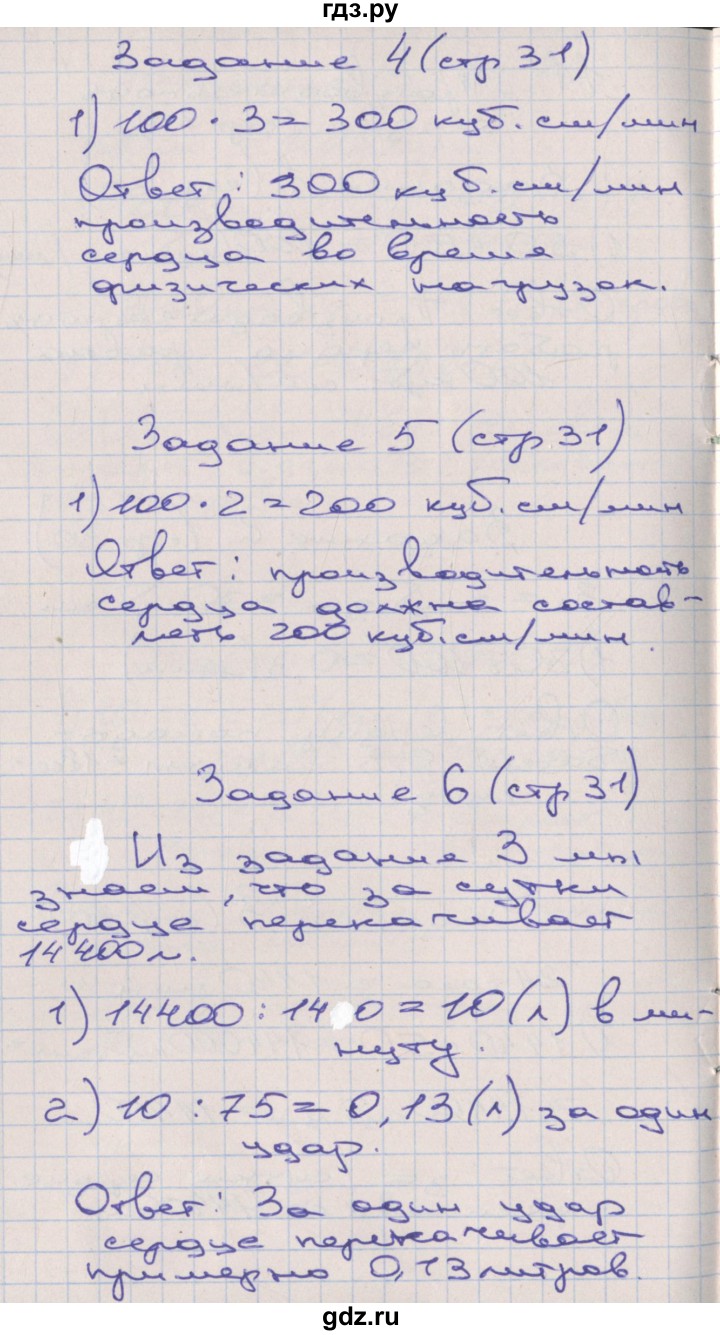 гдз.ру
Задание 4 (стр 31)
1) 100 · 3 = 300 куб. см/мин
Ответ: 300 куб. см/мин
производительность
сердца во время
физических нагрузок.
Задание 5 (стр 31)
1) 100 · 2 = 200 куб. см/мин
Ответ: производительность
сердца должна состав-
лять 200 куб. см/мин.
Задание 6 (стр 31)
Из задание 3 мы
знаем, что за сутки
сердце перекачивает
14400 л.
1) 14400 : 14 0 = 10 (л) в ми-
нуту.
2) 10 : 75 = 0,13 (л) за один
удар.
Ответ: За один удар
сердце перекачивает
примерно 0,13 литров.
gdz.ru